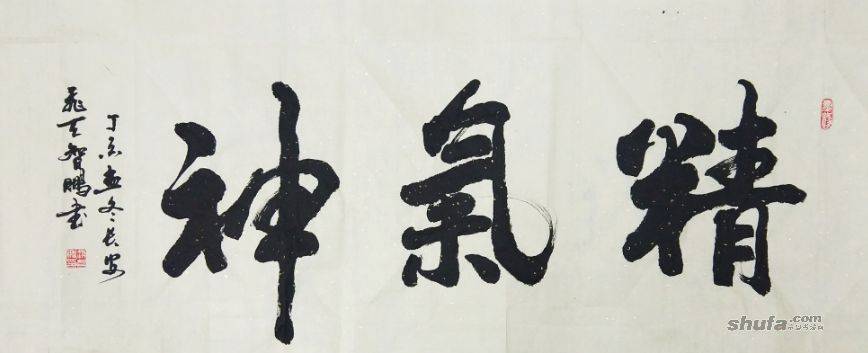 精氣神
丁亥孟冬长安
飛天智鵬書
shufa.com